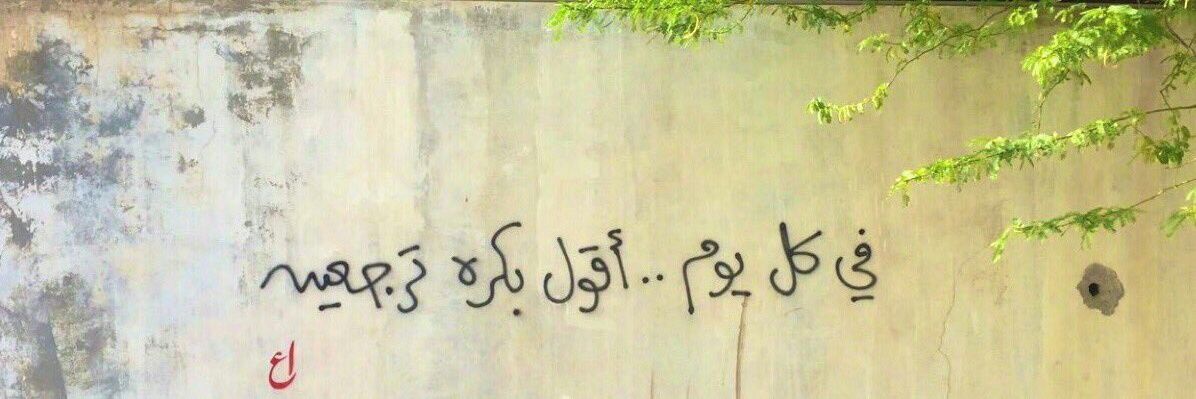 في كل يوم .. أقول بكره ترجعين
اع